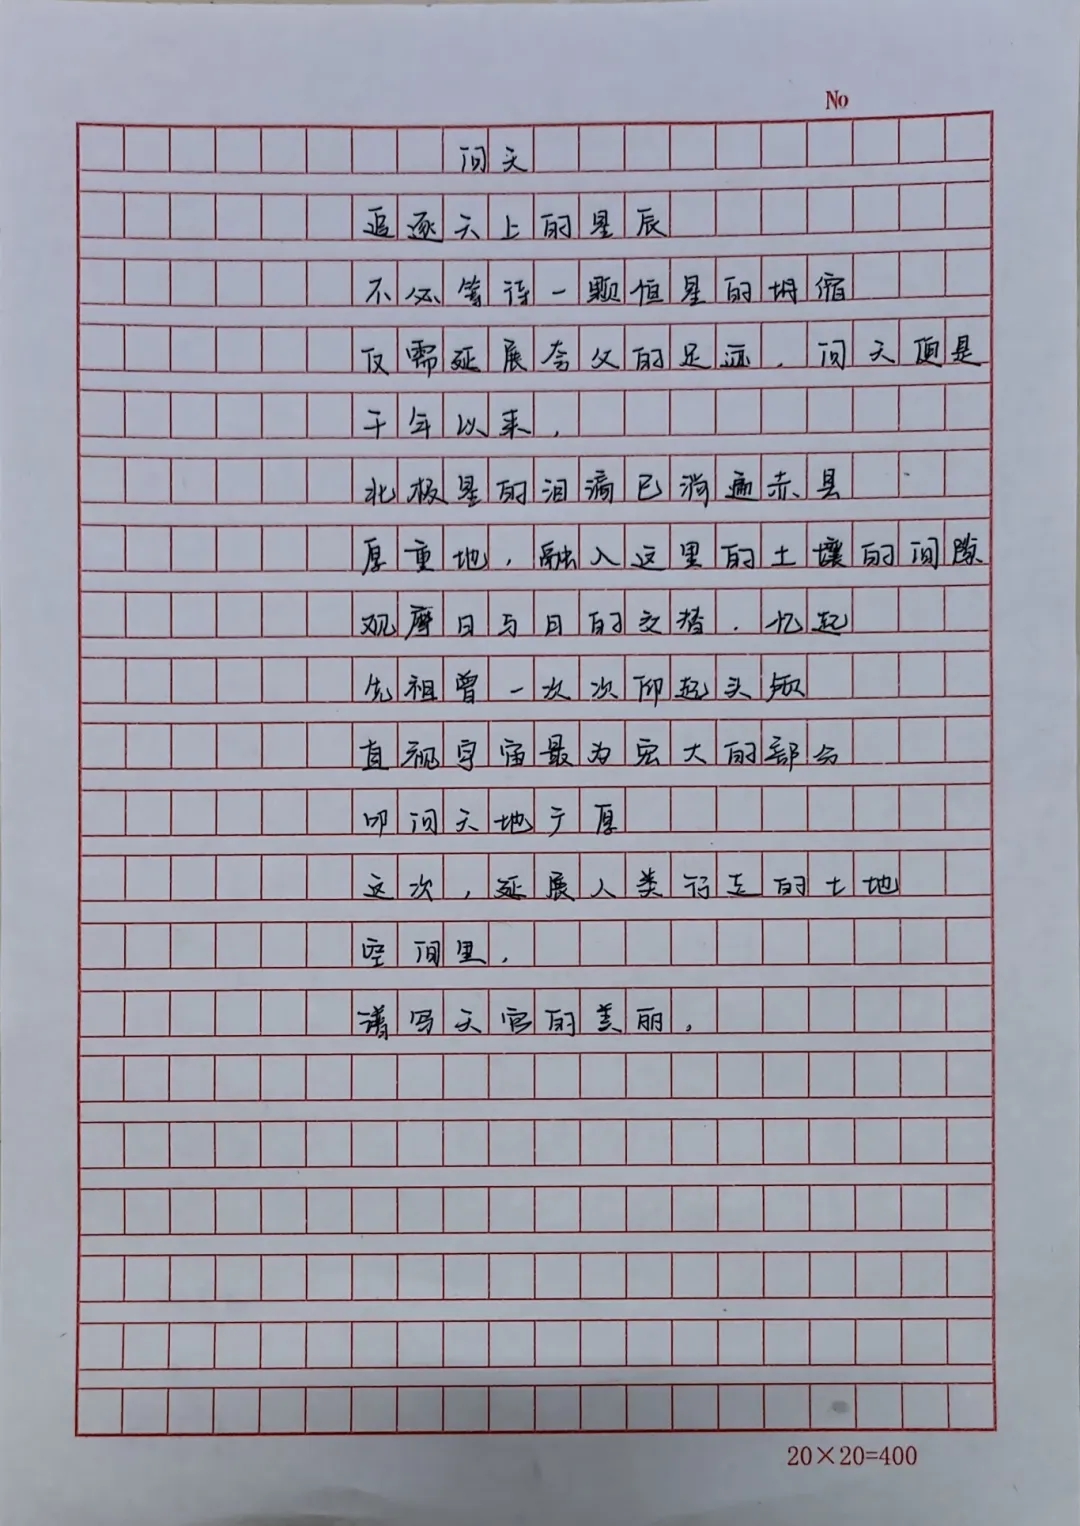 No
问天
追逐天上的星辰
不必等待一颗恒星的坍缩
仅需延展夸父的足迹，问天便是
千年以来，
北极星的泪滴已淌遍赤县
厚重地，融入这里的土壤的间隙
观摩日与月的交替，忆起
先祖曾一次次仰起头颅
直视宇宙最为宏大的部分
叩问天地广厚
这次，延展人类行走的土地
空间里，
谱写天宫的美丽，
20×20=400